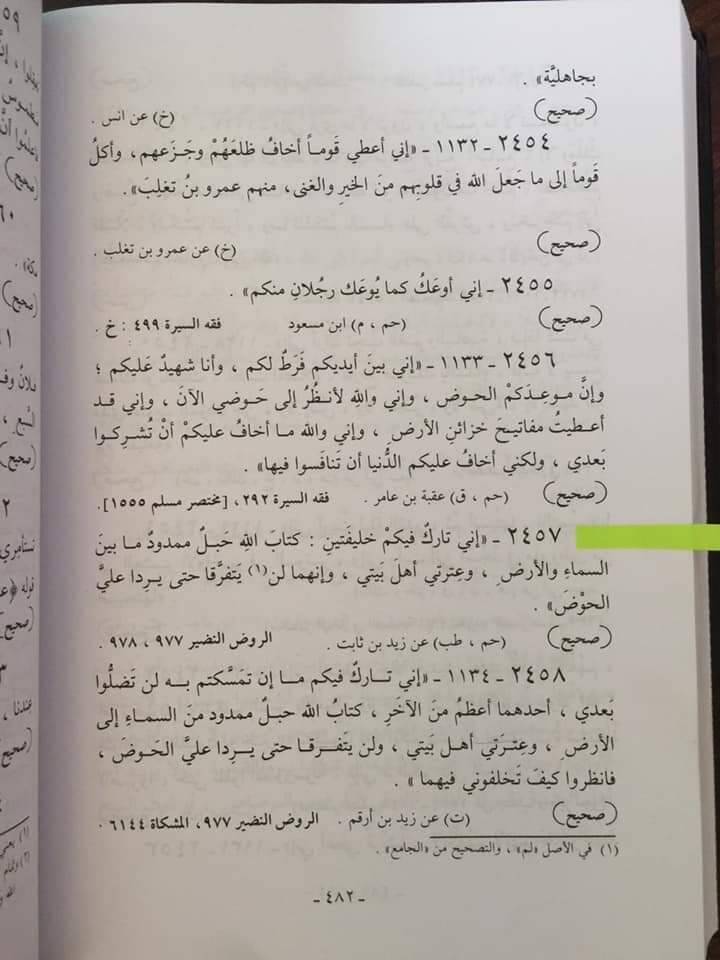 بجاهليَّة» .
(صحيح) (خ) عن انس .
٢٤٥٤ - ١١٣٢ - «إني أعطي قَوماً أخافُ ظلعَهُمْ وجَزَعهم، وأكلُ
قَوماً إلى ما جَعلَ الله في قلوبِهم منَ الخيرِ والغنى، منهم عمرو بنُ تغلِبَ».
(صحيح) (خ) عن عمرو بن تغلب .
٢٤٥٥ - إني أوعَكُ كما يُوعَك رجُلانِ منكم» .
(صحيح) (حم ، م) ابن مسعود فقه السيرة ٤٩٩ : خ .
٢٤٥٦ - ١١٣٣ - «إني بينَ أيديكم فَرَطٌ لكم ، وأنا شهيدٌ عَليكم ؛
وإنَّ موعِدَكمْ الحوض ، وإني واللهِ لأنظُرُ إلى حَوضي الآنَ ، وإني قد
أعطيتُ مفاتيحَ خزائنِ الأرضِ ، وإني والله ما أخافُ عليكمْ أنْ تُشرِكوا
بَعدي ، ولكني أخافُ عليكم الدُّنيا أن تَنافَسوا فيها» .
(صحيح) (حم ، ق) عقبة بن عامر . فقه السيرة ٢٩٢ ، [مختصر مسلم ١٥٥٥].
٢٤٥٧ - «إني تاركٌ فيكمْ خليفَتينِ : كتابَ اللهِ حَبلٌ ممدودٌ ما بينَ
السماءِ والأرضِ ، وعِترتي أهلَ بَيتي ، وإنهما لن(١) يَتفرَّقا حتى يرِدا عليَّ
الحوْضَ» .
(صحيح) (حم ، طب) عن زيد بن ثابت . الروض النضير ٩٧٧ ، ٩٧٨ .
٢٤٥٨ - ١١٣٤ - «إني تاركٌ فيكم ما إن تمَسَّكتم به لن تَضلُّوا
بَعدي ، أحدهما أعظمُ منَ الآخَرِ ، كتابُ الله حبلٌ ممدود منَ السماءِ إلى
الأرضِ ، وعِترَتي أهل بَيتي ، ولن يَتَفرقا حتى يرِدا عليَّ الحَوضَ ،
فانظروا كيفَ تَخلفوني فيهما» .
(صحيح) (ت) عن زيد بن أرقم . الروض النضير ٩٧٧، المشكاة ٦١٤٤ .
(١) في الأصل «لم» ، والتصحيح من «الجامع» .
- ٤٨٢ -